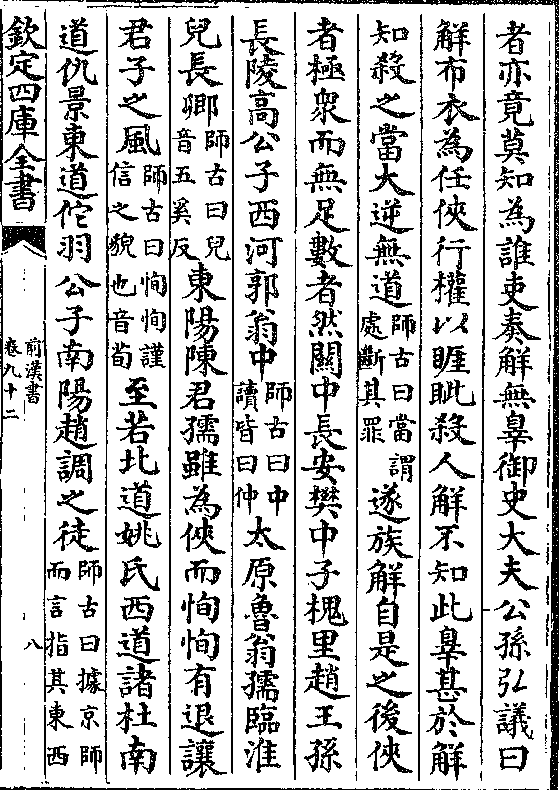 者亦竟莫知為誰吏奏解無辠御史大夫公孫弘議曰
解布衣為任俠行權以睚眦殺人解不知此辠甚於解
知殺之當大逆無道師古曰當謂處斷其罪遂族解自是之後俠
者極衆而無足數者然關中長安樊中子槐里趙王孫
長陵高公子西河郭翁中師古曰中讀皆曰仲太原魯翁孺臨淮
兒長卿師古曰兒音五奚反東陽陳君孺雖為俠而恂恂有退讓
君子之風師古曰恂恂謹信之貌也音荀至若北道姚氏西道諸杜南
道仇景東道佗羽公子南陽趙調之徒師古曰據京師而言指其東西
欽定四庫全書
前漢書
卷九十二
八